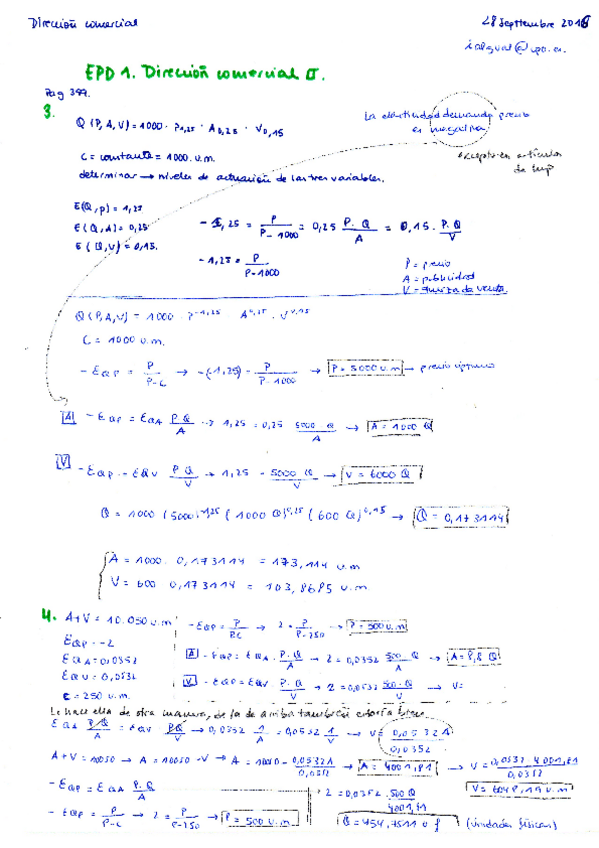 Dirección comercial
28 Septiembre 2016
EPD 1. Dirección comercial II.
Pag 399.
3.
Q (P, A, V) = 1000 · P1,25 · A0,25 · V0,15
La elasticidad demanda precio
es negativa.
excepto en artículos
de
C = constante = 1000 u.m.
determinar → niveles de actuación de las tres variables.
E(Q,p) = 1,25
E(Q,A) = 0,25
E(Q,V) = 0,15.
-1,25 = P / P-1000 = 0,25 P·Q / A = 0,15 · P·Q / V
-1,25 = P / P-1000
P = precio
A = publicidad
V = fuerza de venta
Q(P,A,V) = 1000 · P^-1,25 · A^0,25 · V^0,15
C = 1000 u.m.
-EQP = P / P-C → -(-1,25) = P / P-1000 → P = 5000 u.m → precio óptimo
A - EQP = EQA P·Q / A → 1,25 = 0,25 5000 Q / A → A = 1000 Q
V - EQP = EQV P·Q / V → 1,25 - 5000 Q / V → V = 6000 Q
Q = 1000 (5000)^-1,25 (1000 Q)^0,25 (600 Q)^0,15 → Q = 0,173114
A = 1000 · 0,173114 = 173,114 u.m
V = 600 0,173114 = 103,8685 u.m.
4. A+V = 10.050 u.m
EQP = -2
EQA = 0,0352
EQV = 0,0532
C = 250 u.m.
-EQP = P / P-C → 2 = P / P-250 → P = 500 u.m
A - EQP = EQA · P·Q / A → 2 = 0,0352 500·Q / A → A = 8,8 Q
V - EQP = EQV · P·Q / V → 2 = 0,0532 500·Q / V → V =
Lo hace ella de otra manera, de la de arriba también estaría bien
EQA P·Q / A = EQV P·Q / V → 0,0352 1 / A = 0,0532 1 / V → V = 0,0532 A / 0,0352
A+V = 10050 → A = 10050 - V → A = 10050 - 0,0532 A / 0,0352 → A = 4001,81 → V = 0,0532 · 4001,81 / 0,0352
V = 6048,19 u.m.
-EQP = EQA P·Q / A
2 = 0,0352 · 500 Q / 4001,81
-EQP = P / P-C → 2 = P / P-250 → P = 500 u.m.
Q = 454,7511 u f (unidades físicas)